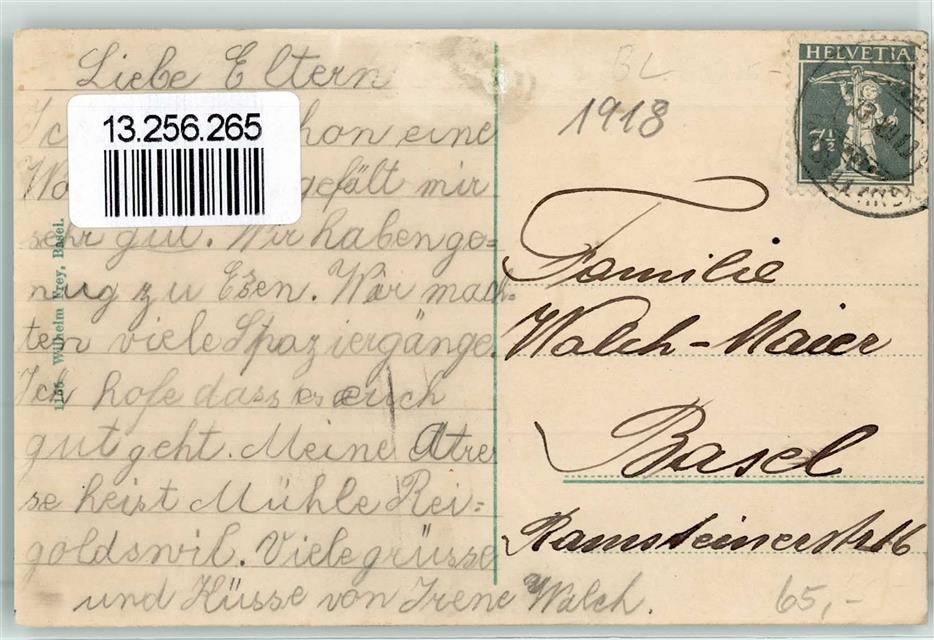 Liebe Eltern
13.256.265
hon eine
gefält mir
sehr gut. Wir haben ge=
nug zu Esen. Wir mach-
ten viele Spaziergänge.
Ich hofe dass es euch
gut geht. Meine Atres
se heist Mühle Rei=
goldswil. Viele grüsse
und Küsse von Irene Walch.
1155 Wilhelm Frey, Basel.
BL
1918
HELVETIA
7½
Familie
Walch-Maier
Basel
Ramsteinerstr 16
65,-